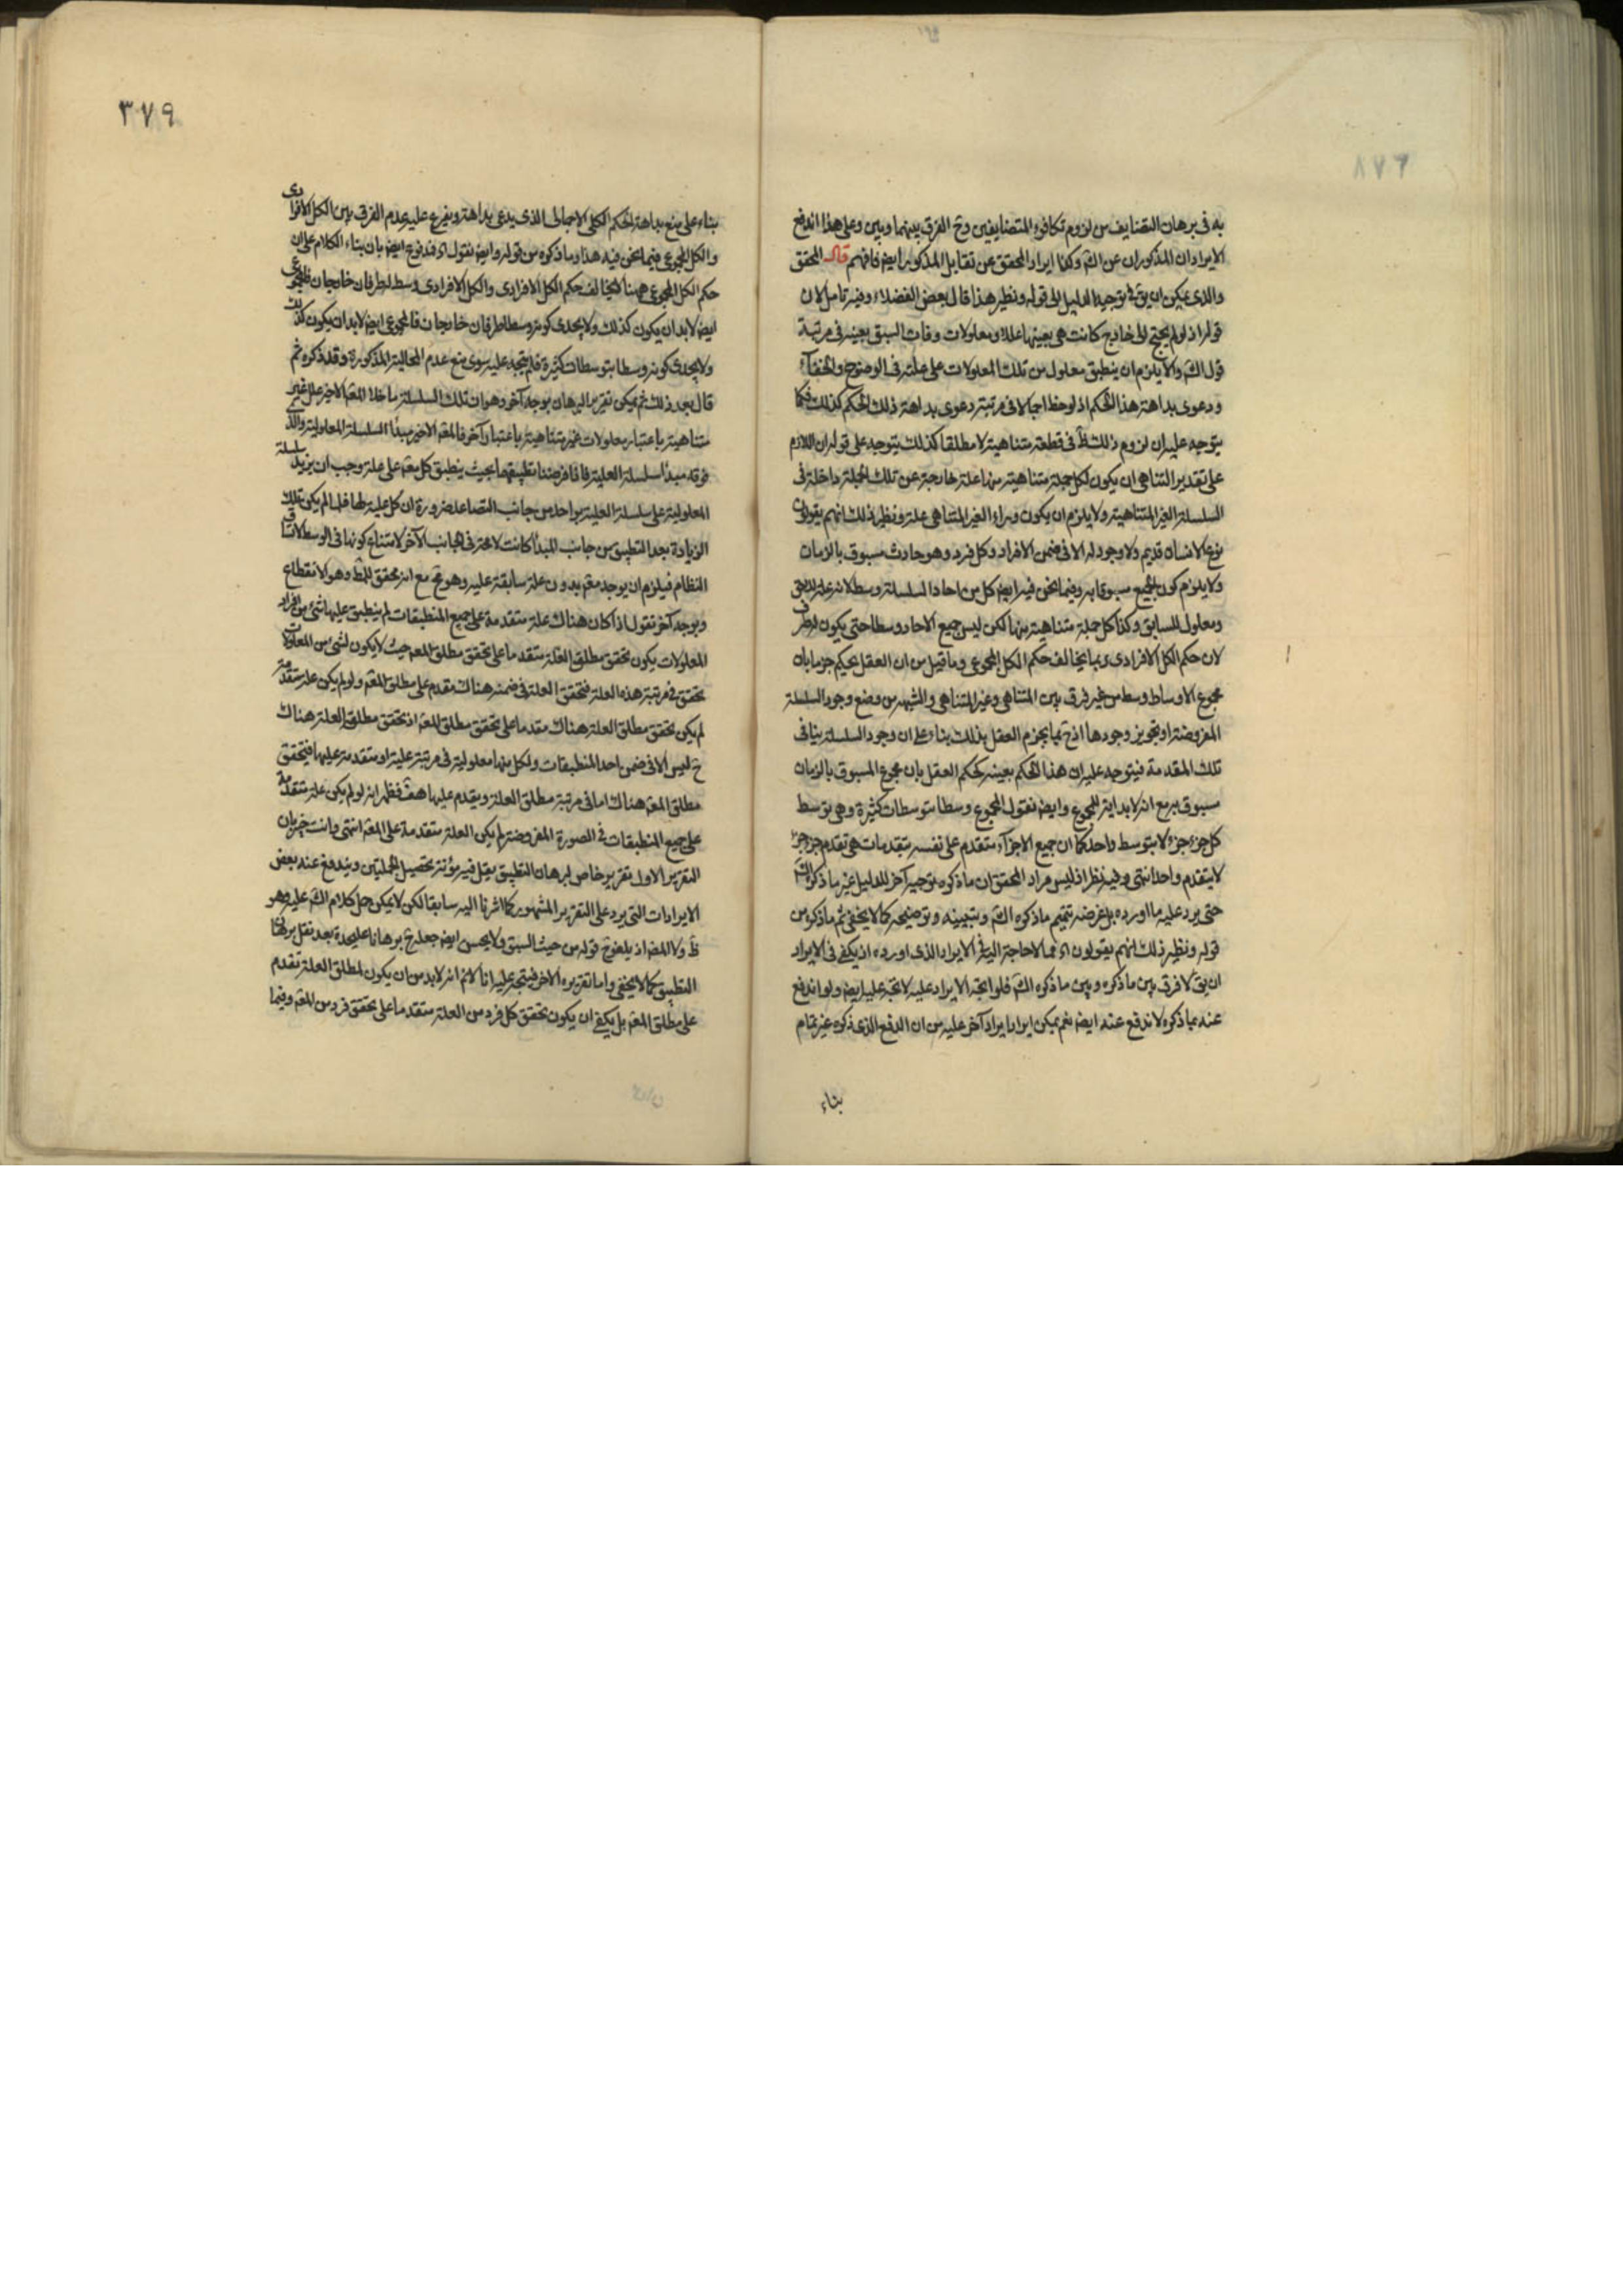 به فی برهان التضایف من لزوم تکافوء المتضایفین وح الفرق بینهما وبین وعلی هذا اندفع
الایرادان المذکوران عن الش وکذا ایراد المحقق عن تقابل المذکور ایض فافهم قال المحقق
والذی یمکن ان یق فی توجیه الدلیل الی قوله ونظیر هذا قال بعض الفضلاء وفیه تامل لان
قوله اذ لو لم یحتج الی خارج کانت هی بعینها عللا ومعلولات وفات السبق بعینه فی مرتبة
قول الش والا یلزم ان ینطبق معلول من تلک المعلولات علی علته فی الوضوح والخفآء
ودعوی بداهة هذا الحکم اذا لوحظ اجمالا فی مرتبة دعوی بداهة ذلک الحکم کذلک فکما
یتوجه علیه ان لزوم ذلک فی قطعة متناهیة لا مطلقا کذلک یتوجه علی قوله ان اللازم
علی تقدیر التناهی ان یکون لکل جملة متناهیة منها علة خارجة عن تلک الجملة داخلة فی
السلسلة الغیر المتناهیة ولا یلزم ان یکون وراء الغیر المتناهی علة ونظیر ذلک انهم یقولون
نوع الانسان قدیم ولا وجود له الا فی ضمن الافراد وکل فرد وهو حادث مسبوق بالزمان
ولا یلزم کون الجمیع مسبوقا به وفیما نحن فیه ایض کل من احاد السلسلة وسط لانه علة للاحق
ومعلول للسابق وکذا کل جملة متناهیة منها لکن لیس جمیع الاحاد وسطا حتی یکون له طرف
لان حکم الکل الافرادی ربما یخالف حکم الکل المجموعی وما قیل من ان العقل یحکم جزما بان
مجموع الاوساط وسط من غیر فرق بین المتناهی وغیر المتناهی والشبهة من وضع وجود السلسلة
المفروضة او تجویز وجودها اذ ح ربما یجزم العقل بذلک بناء علی ان وجود السلسلة ینافی
تلک المقدمة فیتوجه علیه ان هذا الحکم بعینه کحکم العقل بان مجموع المسبوق بالزمان
مسبوق به مع انه لا بدایة للمجموع وایض نقول المجموع وسط بتوسطات کثیرة وهی توسط
کل جزء جزء لا بتوسط واحد کما ان جمیع الاجزآء متقدم علی نفسه بتقدمات هی تقدم جزء جزء
لا بتقدم واحد انتهی وفیه نظر اذ لیس مراد المحقق ان ما ذکره توجیه آخر للدلیل غیر ما ذکره الش
حتی یرد علیه ما اورده بل غرضه تتمیم ما ذکره الش وتبیینه وتوضیحه کما لا یخفی ثم ما ذکره من
قوله ونظیر ذلک انهم یقولون اه مما لا حاجة الیه فی الایراد الذی اورده اذ یکفی فی الایراد
ان یق لا فرق بین ما ذکره وبین ما ذکره الش فلو اتجه الایراد علیه لاتجه علیه ایض ولو اندفع
عنه بما ذکره لاندفع عنه ایض نعم یمکن ایراد ایراد آخر علیه من ان الدفع الذی ذکره غیر تمام
بناء
٣٧٩
بناء علی منع بداهة الحکم الکلی الاجمالی الذی یدعی بداهته ویفرع علیه عدم الفرق بین الکل الافرادی
والکل المجموعی فیما نحن فیه هذا وما ذکره من قوله وایض نقول اه فمدفوع ایض بان بناء الکلام علی ان
حکم الکل المجموعی ههنا لا یخالف حکم الکل الافرادی والکل الافرادی وسط له طرفان خارجان فالمجموعی
ایض لا بد ان یکون کذلک ولا یجدی کونه وسطا طرفان خارجان فالمجموعی ایض لا بد ان یکون کذلک
ولا یجدی کونه وسطا بتوسطات کثیرة فلم یتجه علیه سوی منع عدم المخالفة المذکورة وقد ذکره ثم
قال بعد ذلک ثم یمکن تقریر البرهان بوجه آخر وهو ان تلک السلسلة ما خلا المعم الاخیر علل غیر
متناهیة باعتبار معلولات غیر متناهیة باعتبار آخر فالمعم الاخیر مبدأ السلسلة المعلولیة والذی
فوقه مبدأ سلسلة العلیة فاذا فرضنا تطبیقهما بحیث ینطبق کل معم علی علته وجب ان یزید سلسلة
المعلولیة علی سلسلة العلیة بواحد من جانب التصاعد ضرورة ان کل علیة لها فلما لم یکن تلک
الزیادة بعد التطبیق من جانب المبدأ کانت لا محة فی الجانب الآخر لامتناع کونها فی الوسط لاتساق
النظام فیلزم ان یوجد معم بدون علة سابقة علیه وهو مح مع انه محقق للمط وهو الانقطاع
وبوجه آخر نقول اذا کان هناک علة متقدمة علی جمیع المنطبقات لم ینطبق علیها شئ من افراد
المعلولات یکون تحقق مطلق العلة متقدما علی تحقق مطلق المعم حیث لا یکون لشئ من المعلولات
تحقق فی مرتبة هذه العلة فتحقق العلة فی ضمنه هناک مقدم علی مطلق المعم ولو لم یکن علة متقدمة
لم یکن تحقق مطلق العلة هناک مقدما علی تحقق مطلق المعم اذ تحقق مطلق العلة هناک
ح لیس الا فی ضمن احد المنطبقات ولکل منها معلولیة فی مرتبة علیة او متقدمة علیها فیتحقق
مطلق المعم هناک اما فی مرتبة مطلق العلة ویقدم علیها هف فظهر انه لو لم یکن علة متقدمة
علی جمیع المنطبقات فی الصورة المفروضة لم یکن العلة متقدمة علی المعم انتهی وانت خبیر بان
التقریر الاول تقریر خاص لبرهان التطبیق یقل فیه مؤنة تحصیل الجملتین ویندفع عنه بعض
الایرادات التی یرد علی التقریر المشهور کما اشرنا الیه سابقا لکن لا یمکن حمل کلام الش علیه وهو
ظ ولا المص اذ یلغو ح قوله من حیث السبق ولا یحسن ایض جعله ح برهانا علیحدة بعد نقل برهان
التطبیق کما لا یخفی واما تقریره الاخر فیتجه علیه انا لا نم انه لا بد من ان یکون لمطلق العلة تقدم
علی مطلق المعم بل یکفی ان یکون تحقق کل فرد من العلة متقدما علی تحقق فرد من المعم وفیما